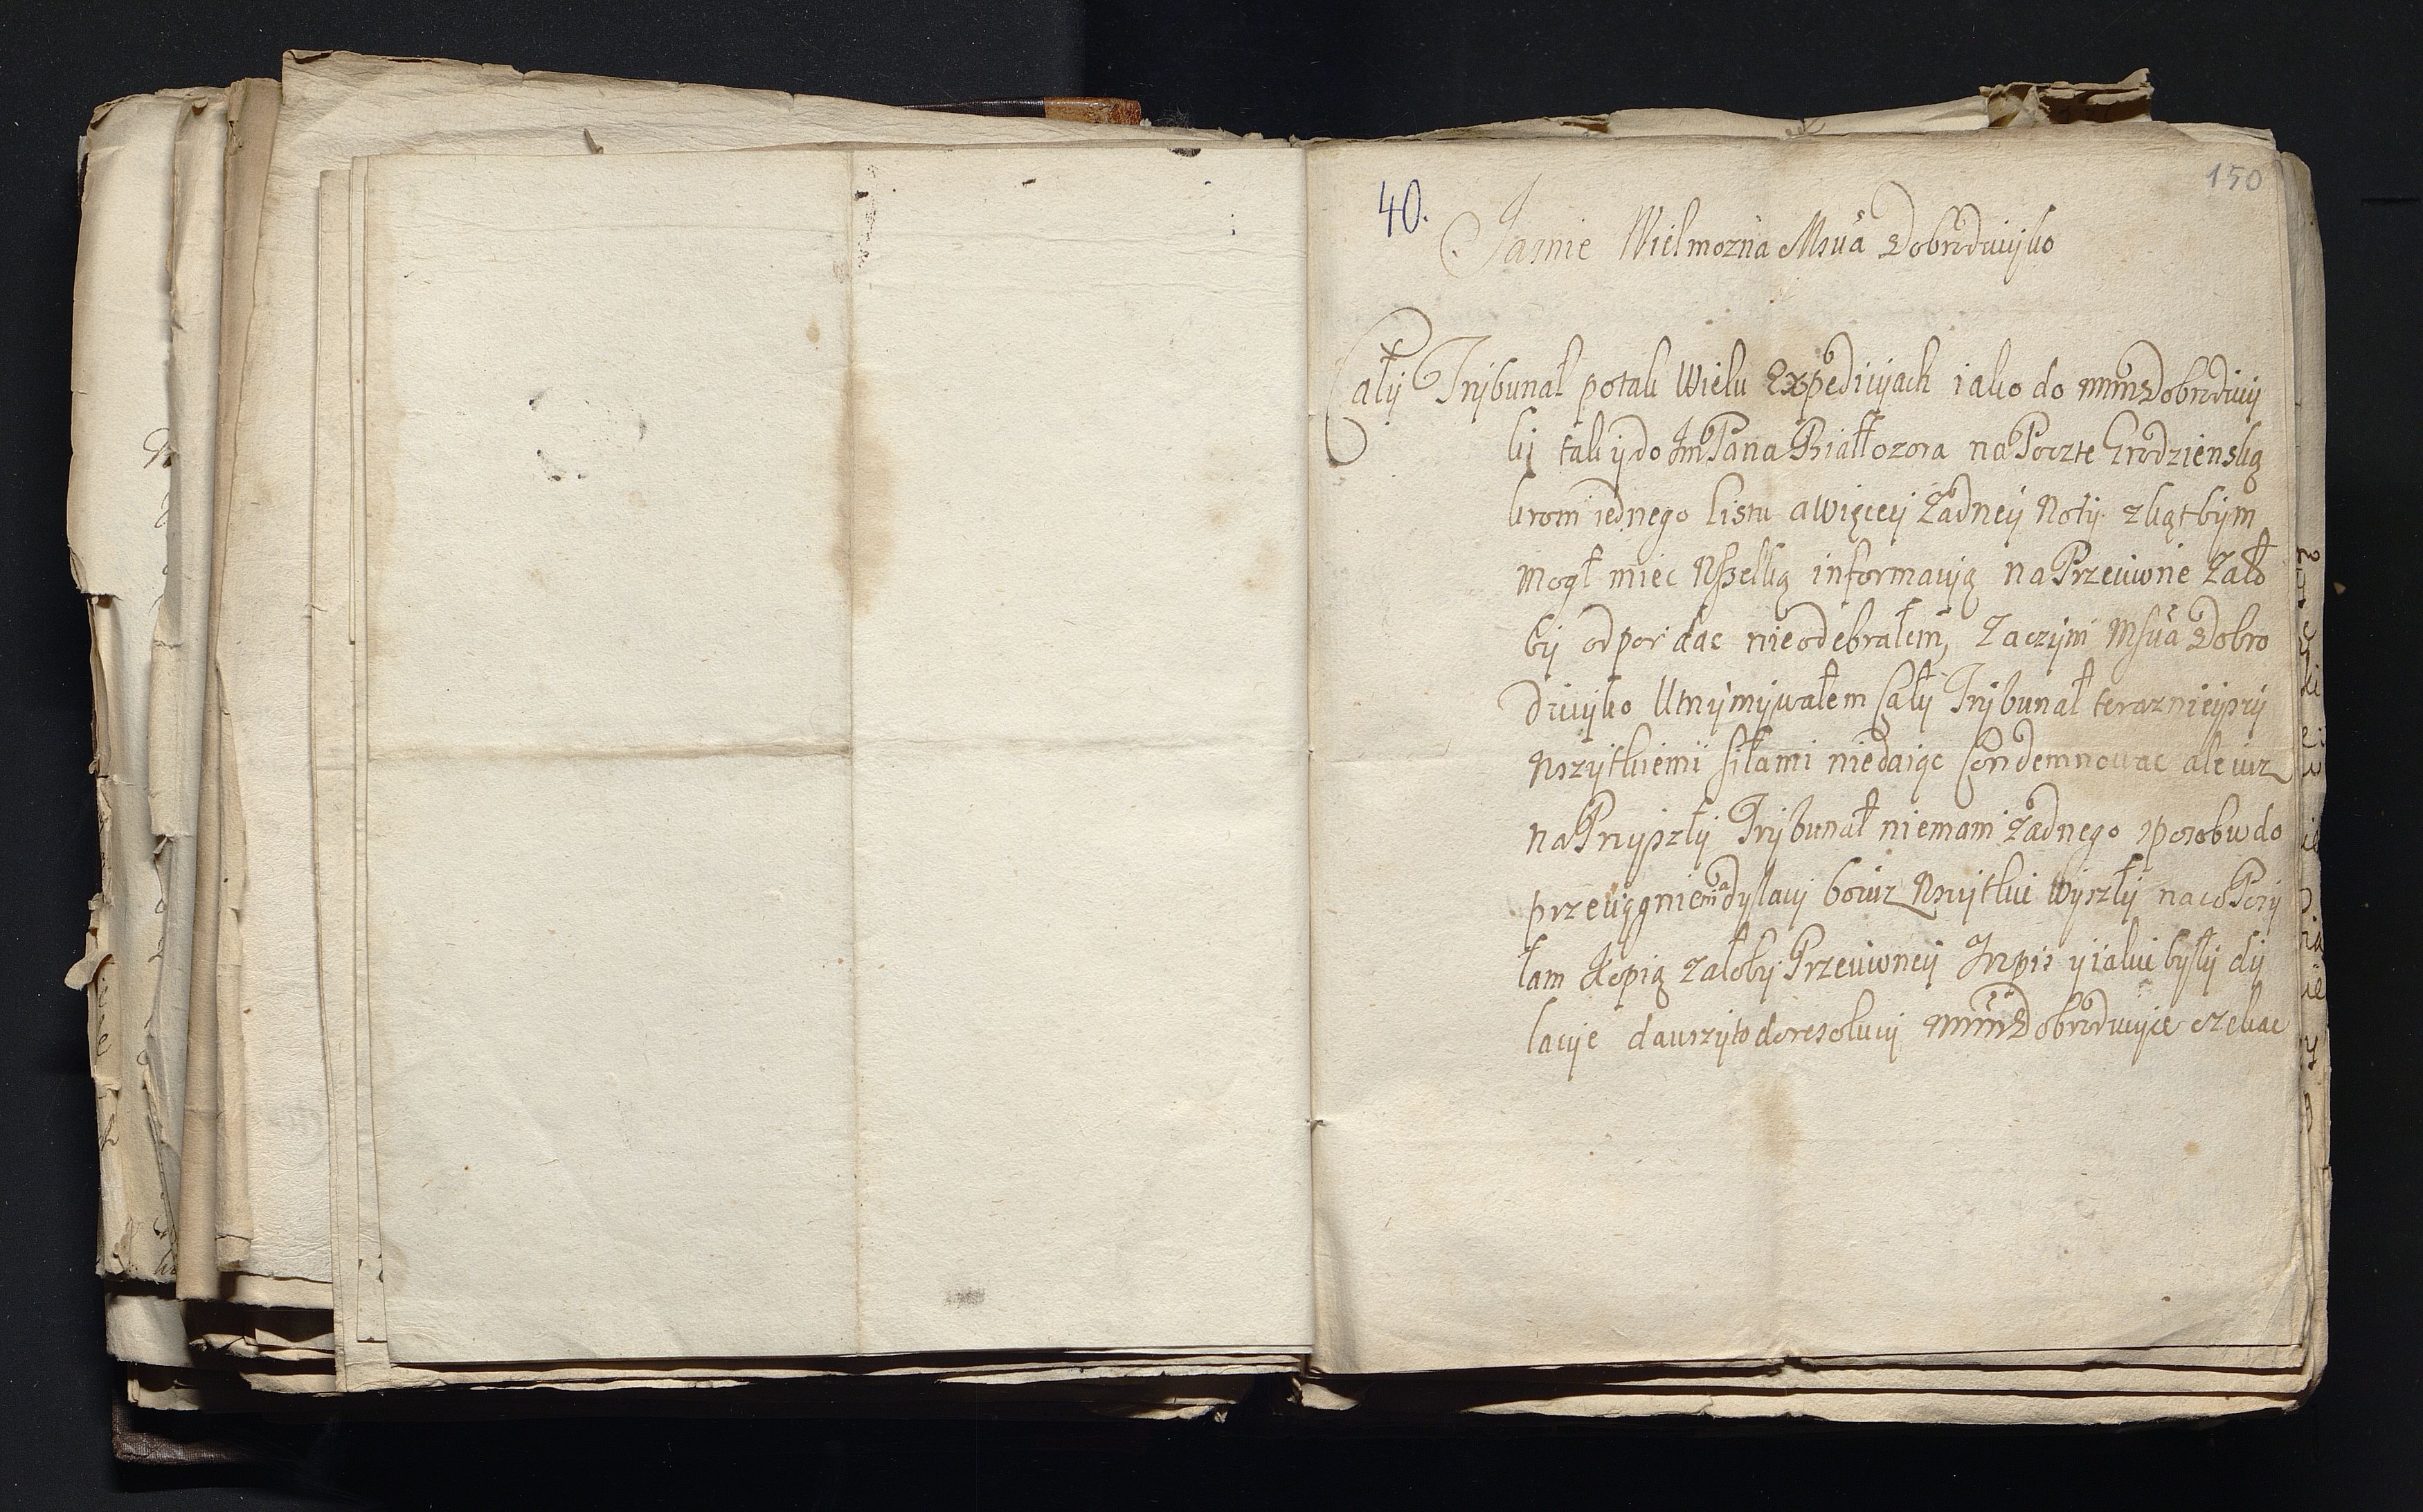 40.
150
Jasnie Wielmozna Msua Dobrodziyko
Cały Trybunał potak Wielu Expedicyach iako do mmm Dobrodziy
ki tak ydo Jm Pana Białłozora na Poczte Grodzienską
krom iednego Listu awięcey Żadney Noty zkąt bym
mogł miec Wszelką informacyą na Przeciwne Zało
by odpor dac nieodebrałem, Zaczym Msua Dobro
dziyko Utrzymywałem Cały Trybunał teraznieyszy
Wszytkiemi siłami niedaiąc Condemnowac ale iuz
na Przyszły Trybunał niemam Żadnego sposobu do
przeciągnienia dylacyi bo iuz Wszytkie Wyszły naco Posy
łam Kopią Załoby Przeciwney Inpis y iakie były dy
lacyie dauszyto doresolucyi mmm Dobrodziyce czekac